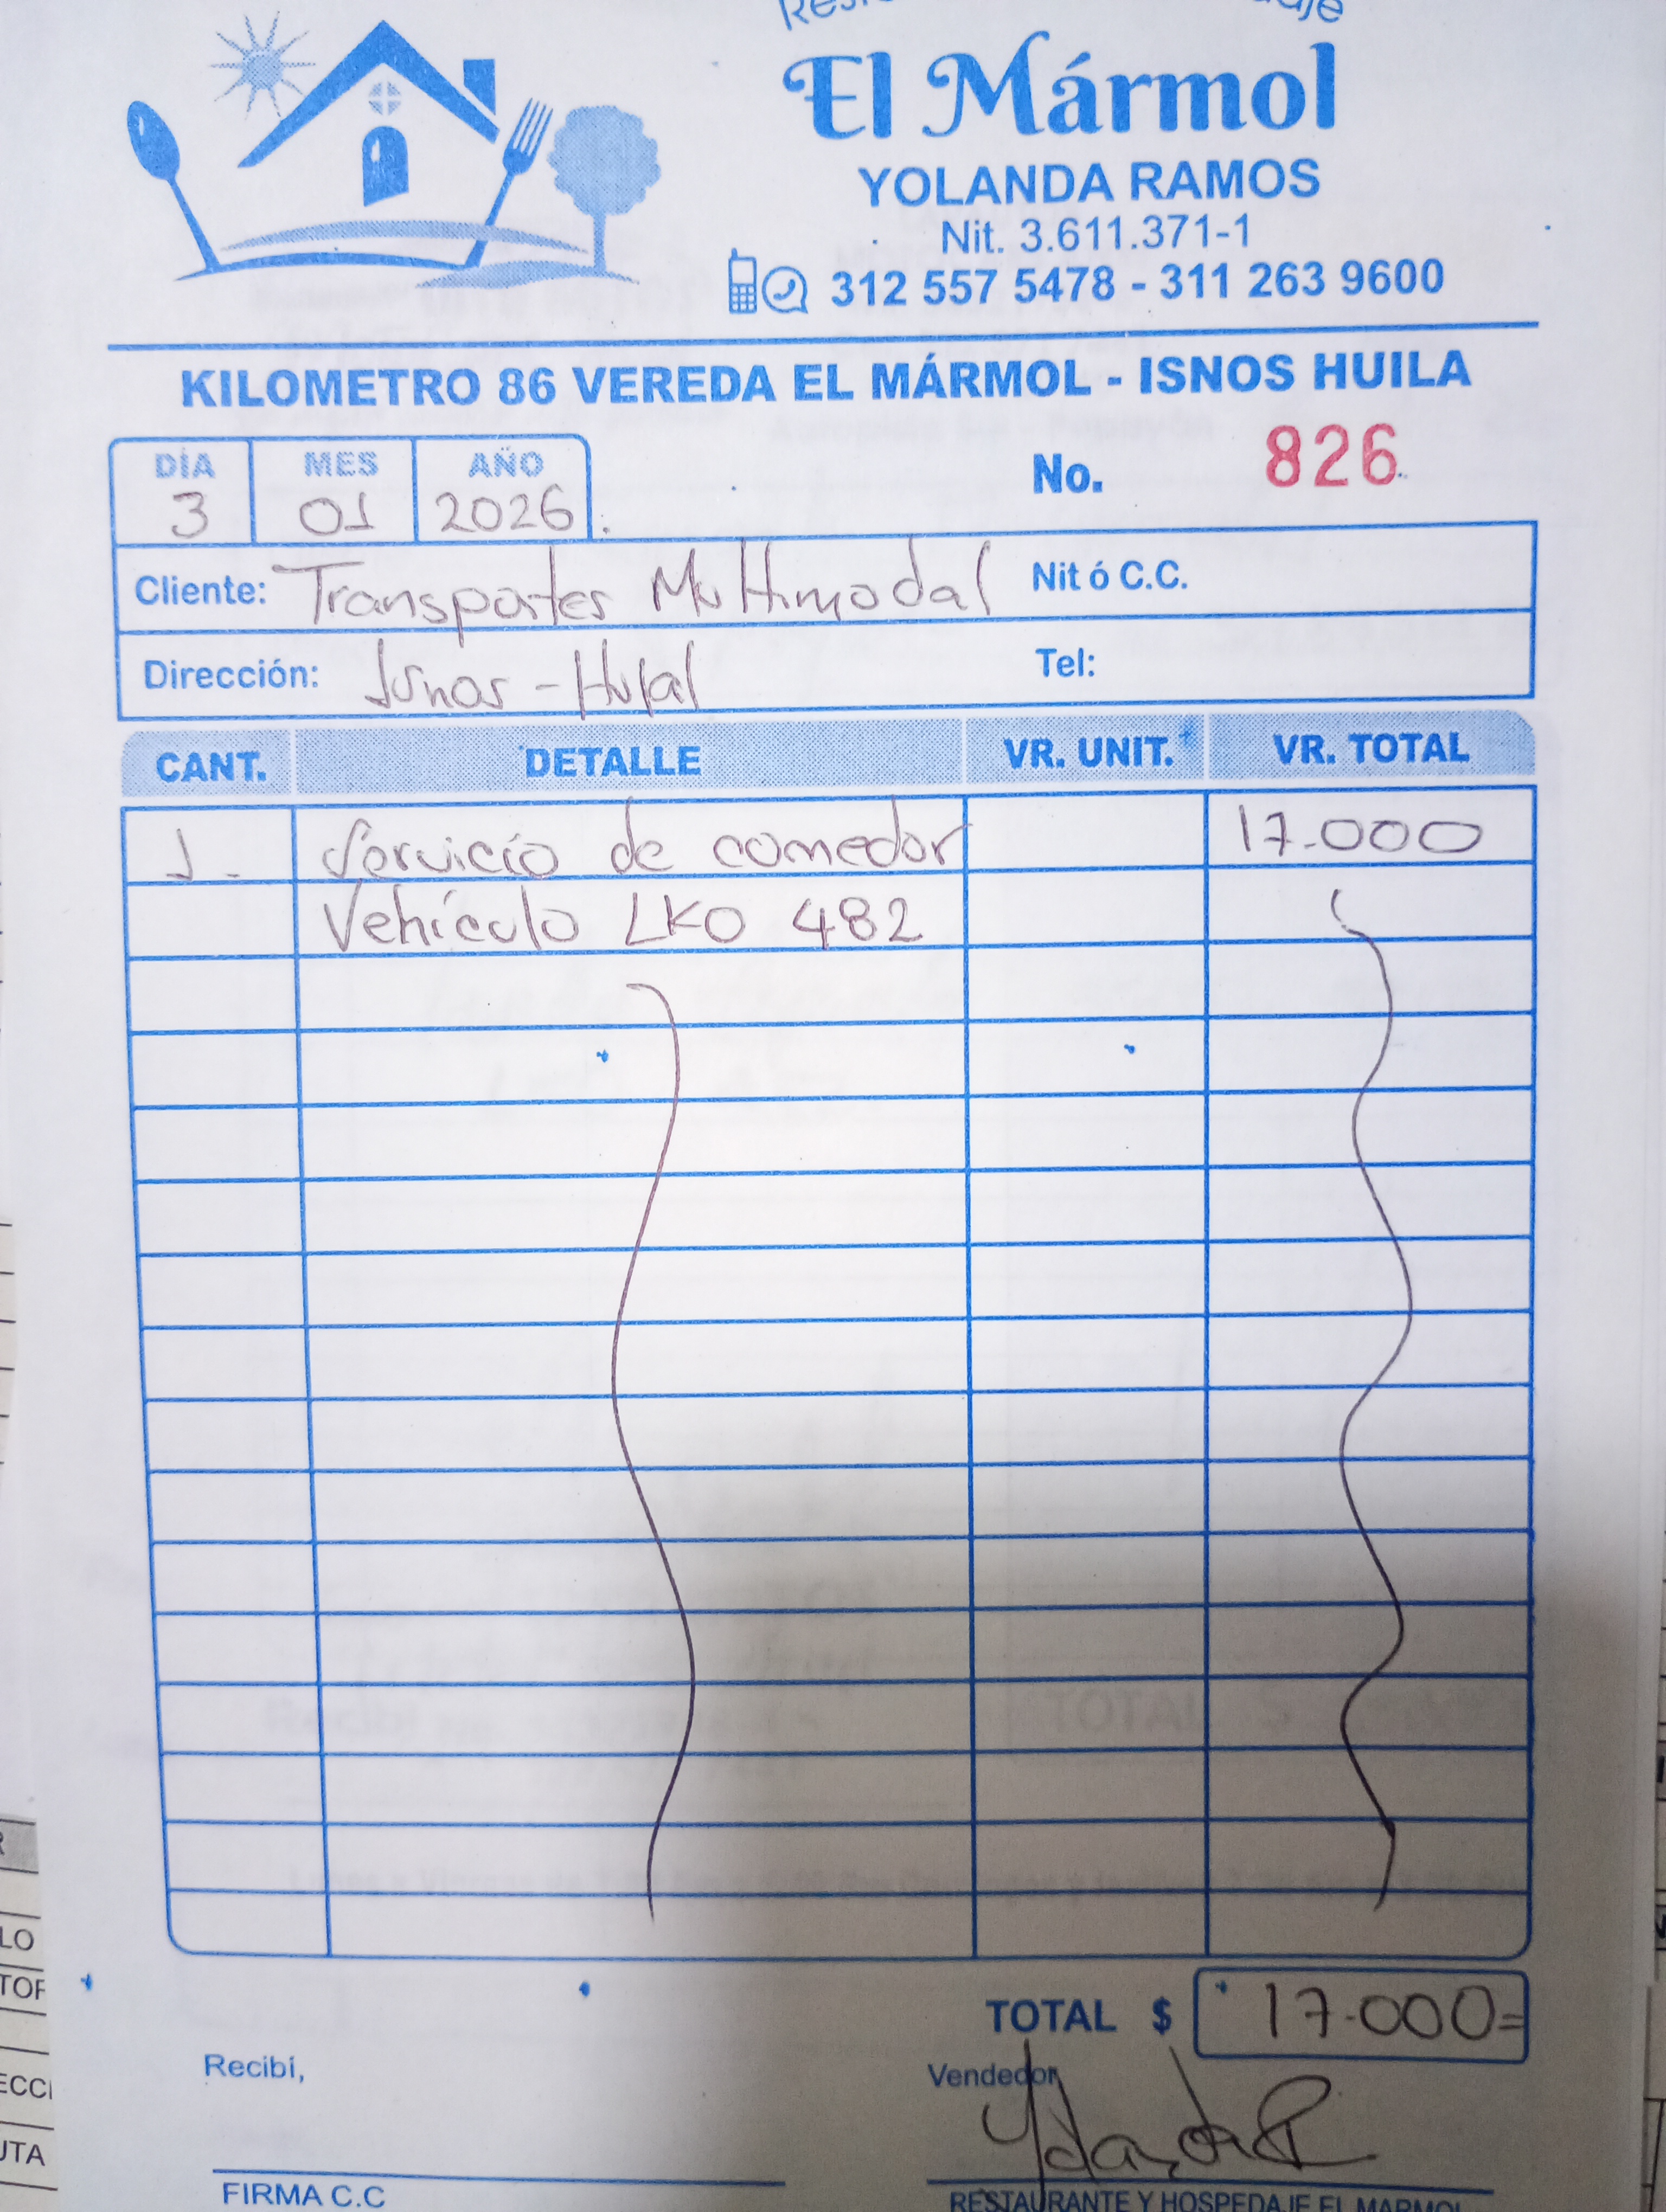 El Mármol
YOLANDA RAMOS
Nit. 3.611.371-1
312 557 5478 - 311 263 9600
KILOMETRO 86 VEREDA EL MÁRMOL - ISNOS HUILA
DÍA MES AÑO
3 01 2026
No. 826
Cliente: Transportes Multimodal Nit ó C.C.
Dirección: Isnos - Hulal Tel:
CANT. DETALLE VR. UNIT. VR. TOTAL
1. Servicio de comedor 17.000
Vehículo LKO 482
TOTAL $ 17.000=
Recibí,
Vendedor
Yolanda R
FIRMA C.C
RESTAURANTE Y HOSPEDAJE EL MARMOL
LO
TOF
ECCI
UTA